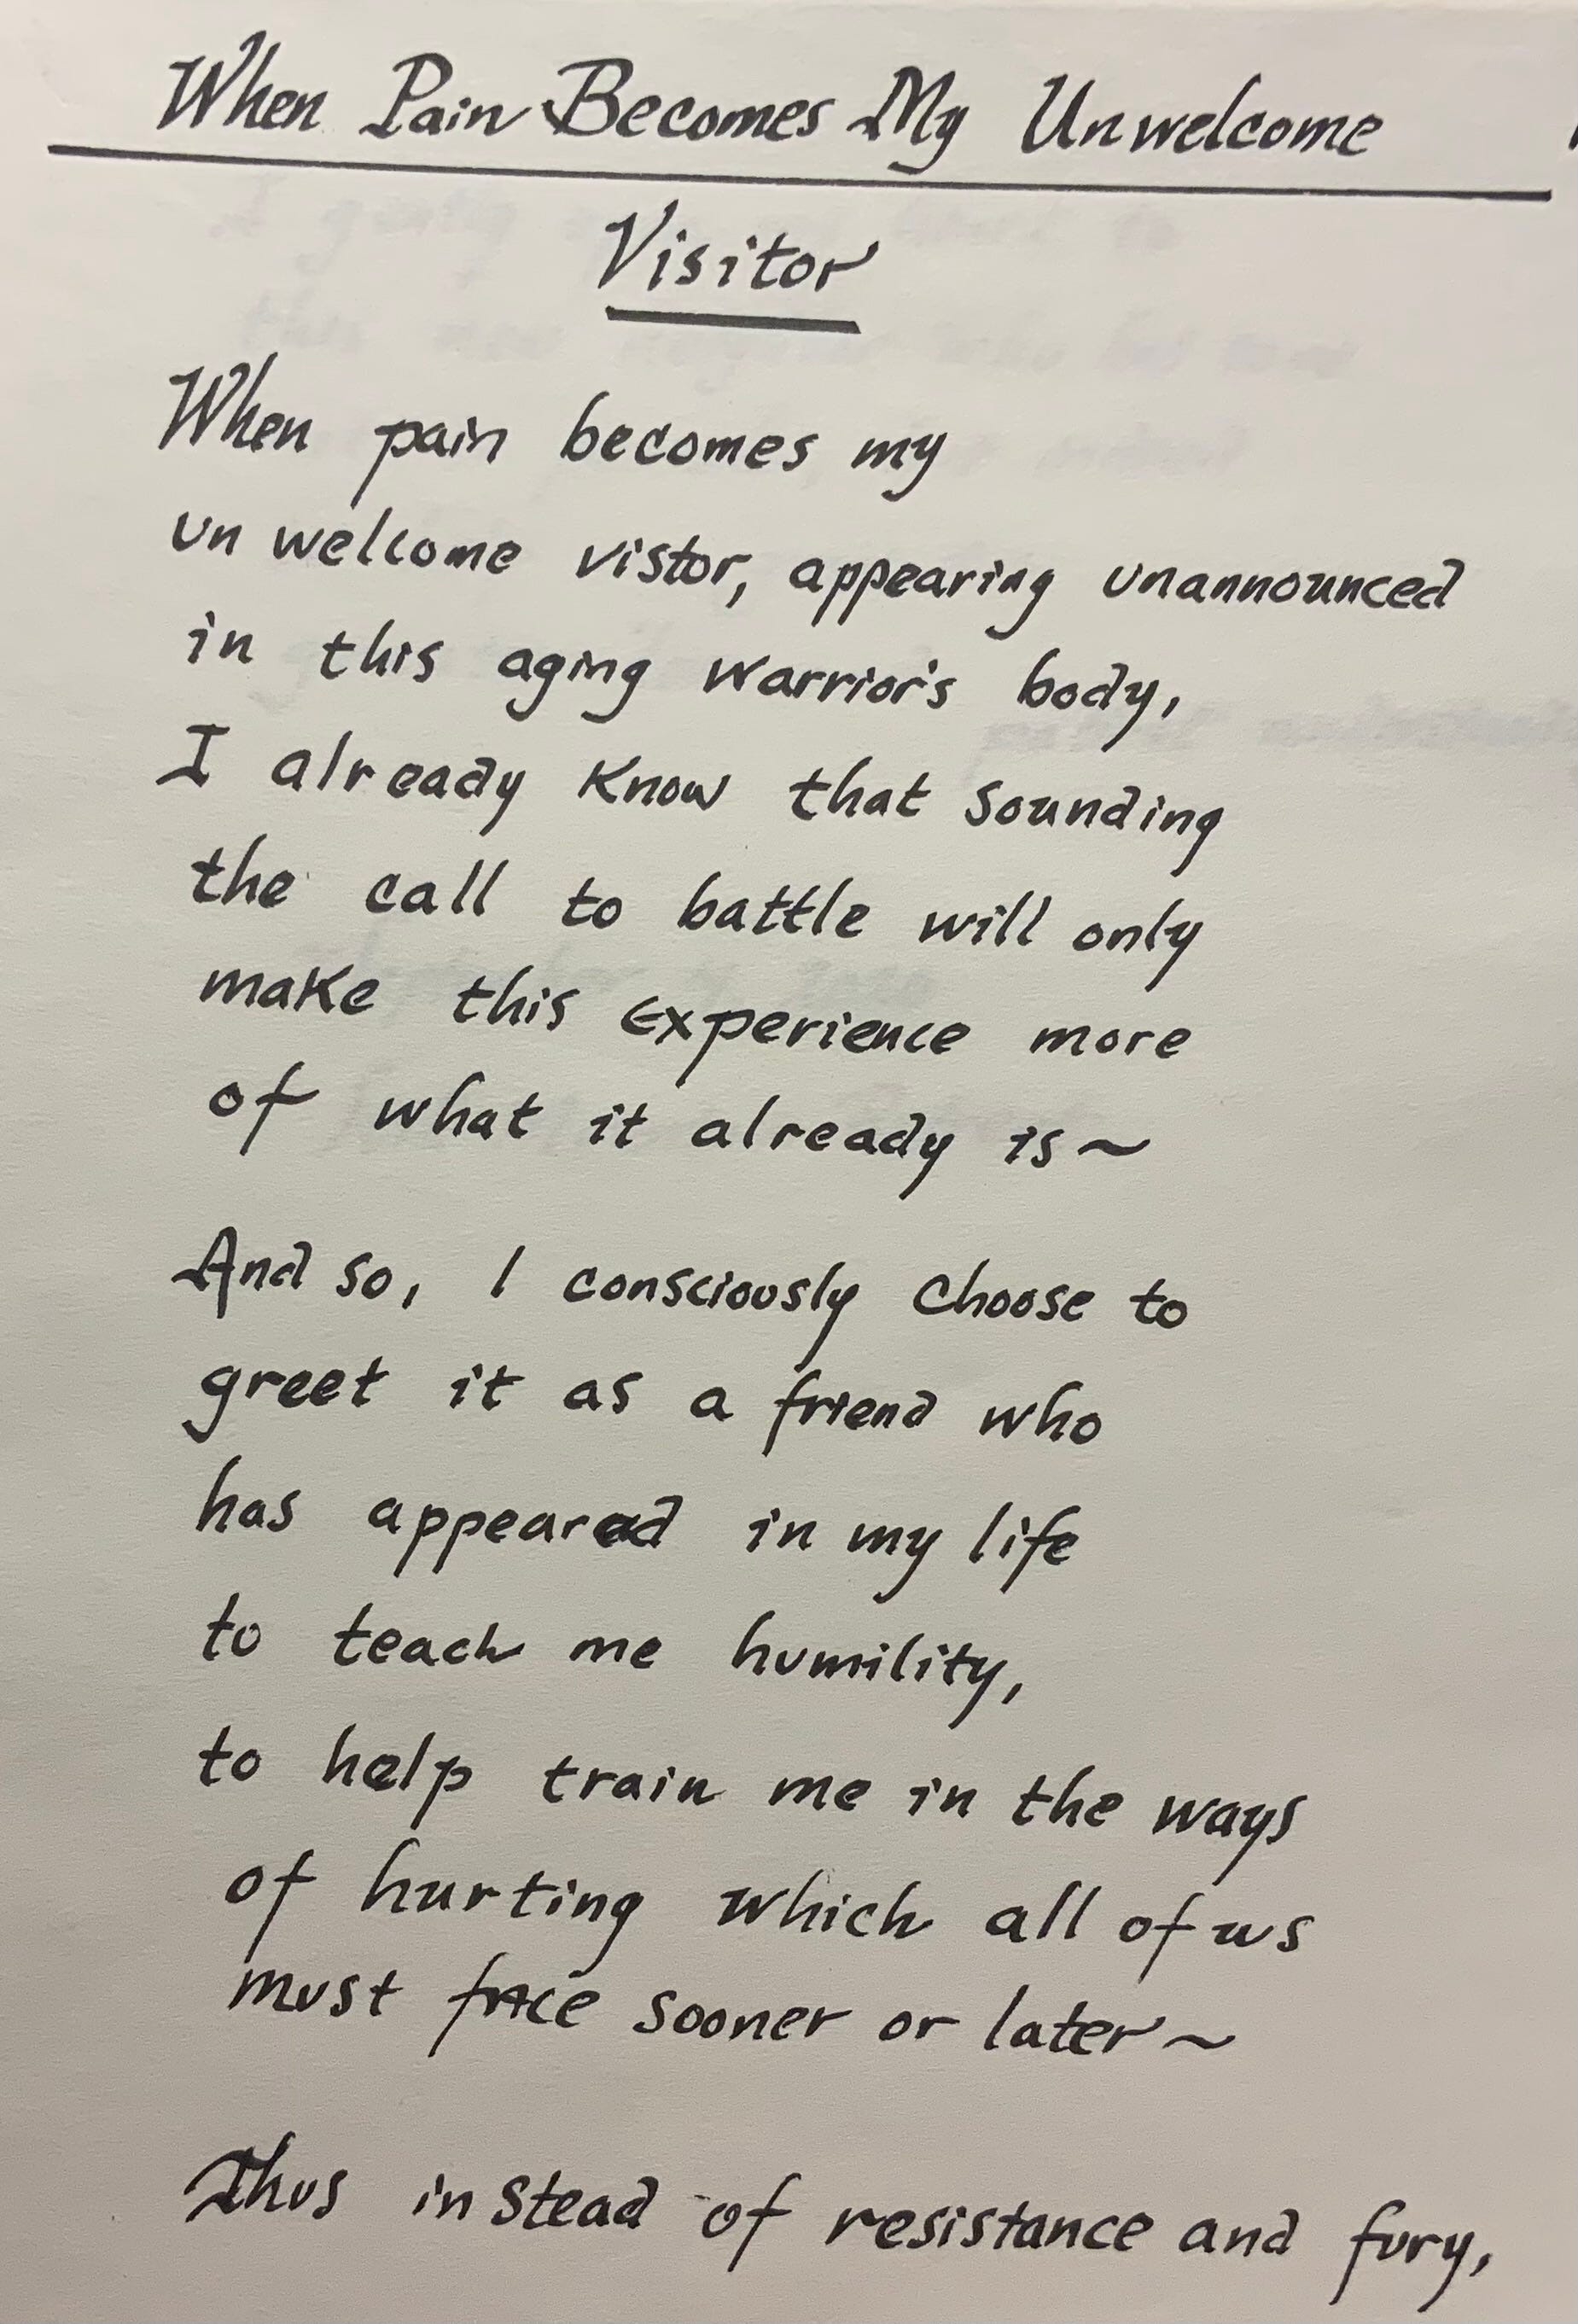 When Pain Becomes My Unwelcome
Visitor
When pain becomes my
unwelcome vistor, appearing unannounced
in this aging warrior's body,
I already know that sounding
the call to battle will only
make this experience more
of what it already is~
And so, I consciously choose to
greet it as a friend who
has appeared in my life
to teach me humility,
to help train me in the ways
of hurting which all of us
must face sooner or later~
Thus instead of resistance and fury,